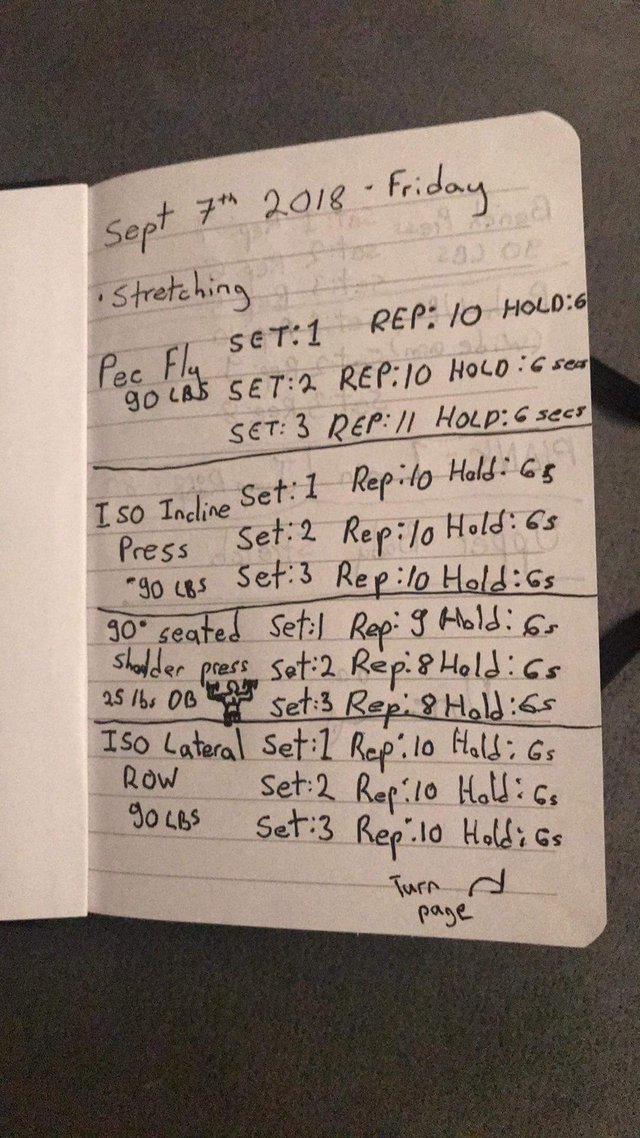 Sept 7th 2018 · Friday
· Stretching
Pec Fly SET:1 REP:10 HOLD:6
90 LBS SET:2 REP:10 HOLD:6 secs
SET:3 REP:11 HOLD:6 secs
ISO Incline Set:1 Rep:10 Hold:6s
Press Set:2 Rep:10 Hold:6s
~90 LBS Set:3 Rep:10 Hold:6s
90° seated Set:1 Rep:9 Hold:6s
sholder press Set:2 Rep:8 Hold:6s
25 lbs DB Set:3 Rep:8 Hold:6s
ISO Lateral Set:1 Rep:10 Hold:6s
ROW Set:2 Rep:10 Hold:6s
90 LBS Set:3 Rep:10 Hold:6s
Turn
page